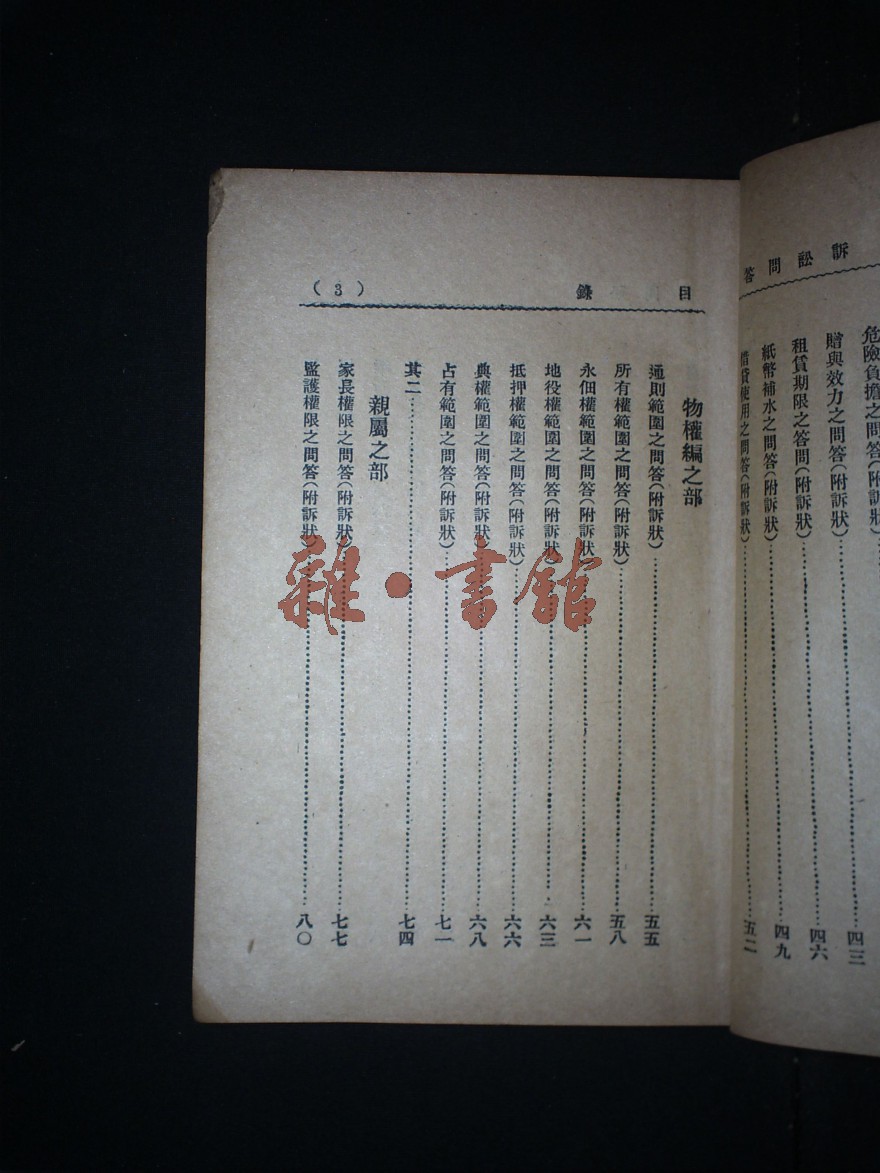 訴訟問答
危險負擔之問答(附訴狀)……四三
贈與效力之問答(附訴狀)……四六
租賃期限之答問(附訴狀)……四九
紙幣補水之問答(附訴狀)……五二
借貸使用之問答(附訴狀)
目錄 (3)
物權編之部
通則範圍之問答(附訴狀)……五五
所有權範圍之問答(附訴狀)……五八
永佃權範圍之問答(附訴狀)……六一
地役權範圍之問答(附訴狀)……六三
抵押權範圍之問答(附訴狀)……六六
典權範圍之問答(附訴狀)……六八
占有範圍之問答(附訴狀)……七一
其二……七四
親屬之部
家長權限之問答(附訴狀)……七七
監護權限之問答(附訴狀)……八〇
雜·書館